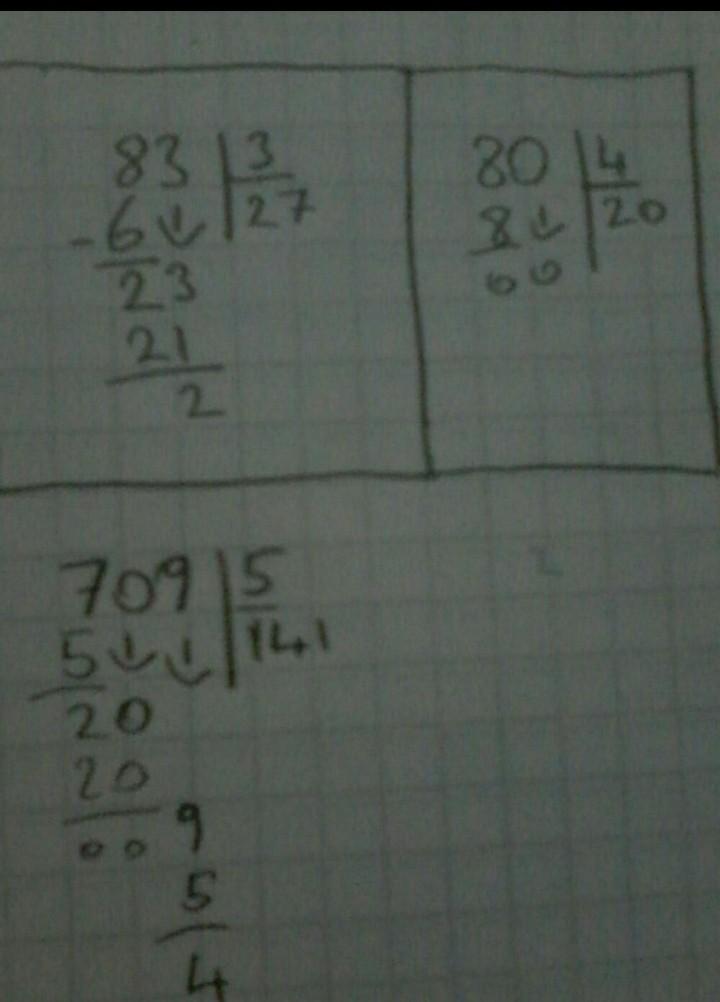 83 3
-6↓ 27
23
21
2
80 4
8↓ 20
00
709 5
5↓↓ 141
20
20
009
5
4